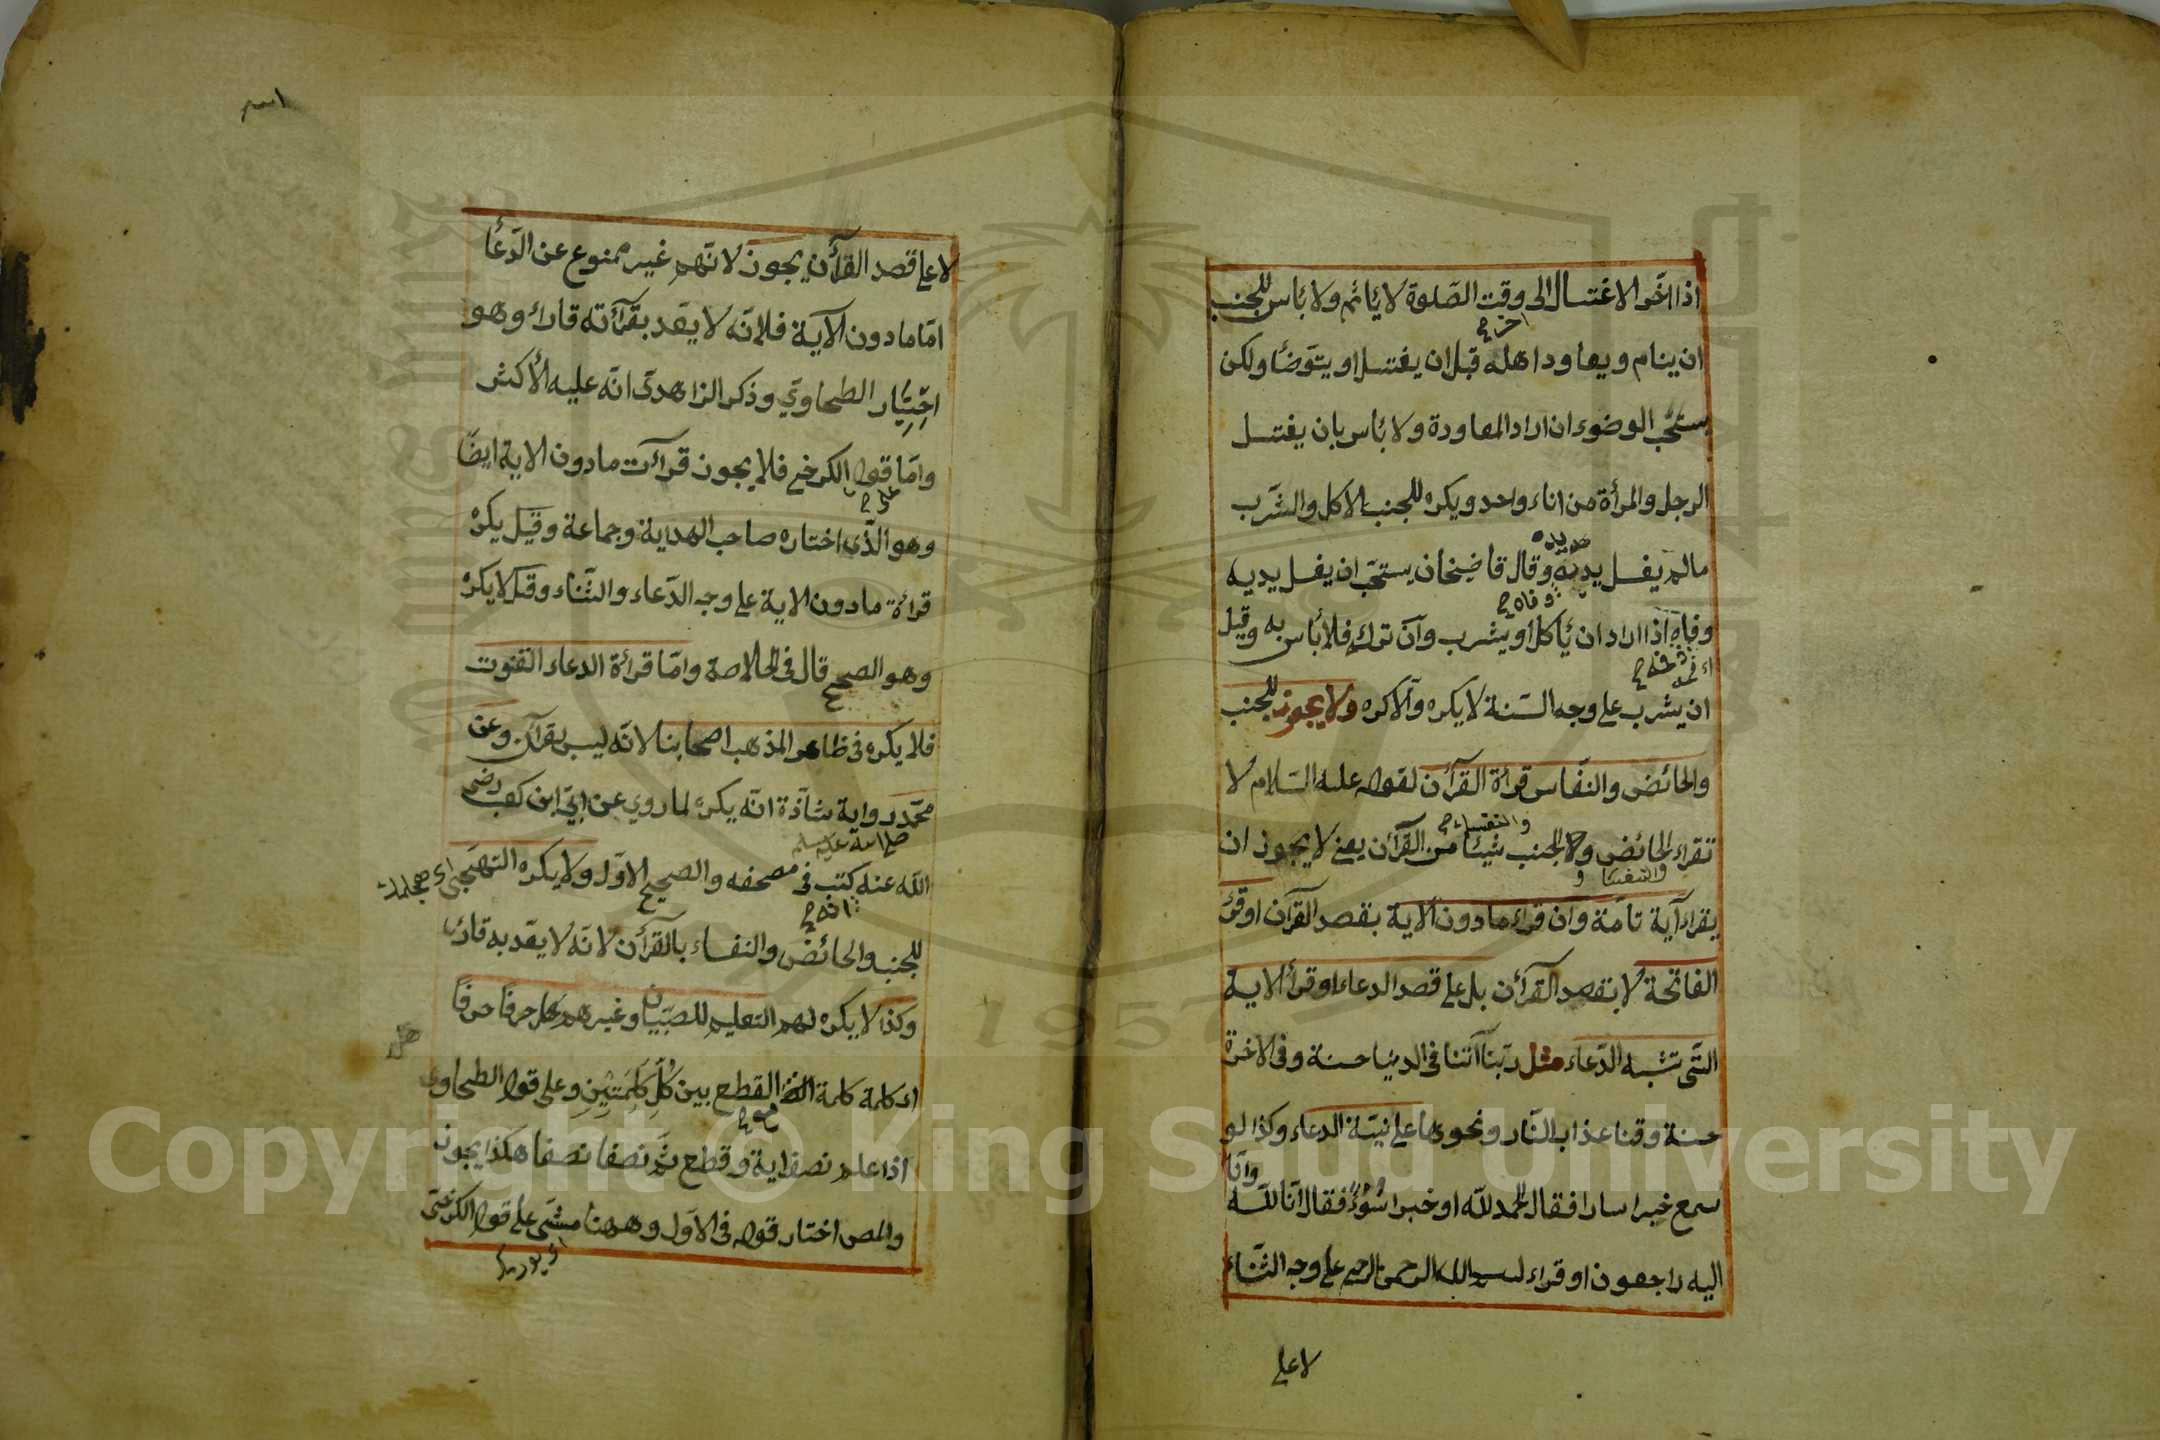 اذا اخّر الاغتسال الى وقت الصّلوة لا يأثم ولا بأس للجنب
ان ينام ويعاود اهله قبل ان يغتسل او يتوضّأ ولكن
يستحّب الوضوء ان اراد المعاودة ولا بأس بان يغتسل
الرجل والمرأة من اناء واحد ويكره للجنب الاكل والشّرب
مالم يغسل يديه وقال قاضيخان يستحّب ان يغسل يديه
وفاه اذا اراد ان يأكل او يشرب وان ترك فلا بأس به وقيل
ان يشرب على وجه السّنة لا يكره والّا كره ولا يجوز للجنب
والحائض والنفّاس قرأة القرآن لقوله عليه السّلام لا
تقراء الحائض ولا الجنب شيئا من القرآن يعنى لا يجوز ان
والنفساء
يقراء آية تامّة وان قراء مادون الاية بقصد القرآن او قرئ
الفاتحة لا بقصد القرآن بل على قصد الدعاء او قرأ الاية
التّى تشبه الدّعاء مثل ربّنا آتنا فى الدنيا حسنة وفى الاخرة
حسنة وقنا عذاب النّار ونحوها على نيّة الدعاء وكذا لو
وانّا
سمع خبرا سارا فقال الحمد للّه او خبرا سُوءً فقال انّا للّه
اليه راجعون او قراء بسم الله الرحمن الرحيم على وجه الثّناء
لا على
لا على قصد القرآن يجوز لانّهم غير ممنوع عن الدّعأ
امّا مادون الآية فلانّه لا يعّد بقرآته قارئ وهو
اختيار الطحاوي وذكر الزاهدى انّه عليه الأكثر
وامّا قول الكرخى فلا يجوز قرآت مادون الاية ايضا
وهو الّذى اختاره صاحب الهداية وجماعة وقيل يكره
قرائة مادون الاية على وجه الدّعاء والثّناء وقيل لا يكره
وهو الصحيح قال فى الخلاصة وامّا قرائة الدعاء القنوت
فلا يكره فى ظاهر المذهب اصحابنا لانّه ليس بقرآن وعن
محمّد رواية شاذة انّه يكره لما روي عن ابىّ ابن كعب رضى
صلى الله عليه وسلم
اللّه عنه كتب فى مصحفه والصحيح الاوّل ولا يكره التهجّى
للجنب والحائض والنفساء بالقرآن لانّه لا يعّد به قارئ
وكذا لا يكره لهم التعليم للصّبيان وغيرهم حرفًا حرفًا
اى كلمة كلمة القطع بين كُلِّ كلمتينِ وعلى قول الطحاوى
اذا علم نصف اية وقطع ثمّ نصفا نصفا هكذا يجوز
والمص اختار قوله فى الاوّل وههنا مشى على قول الكرخىّ
Copyright © King Saud University
1957